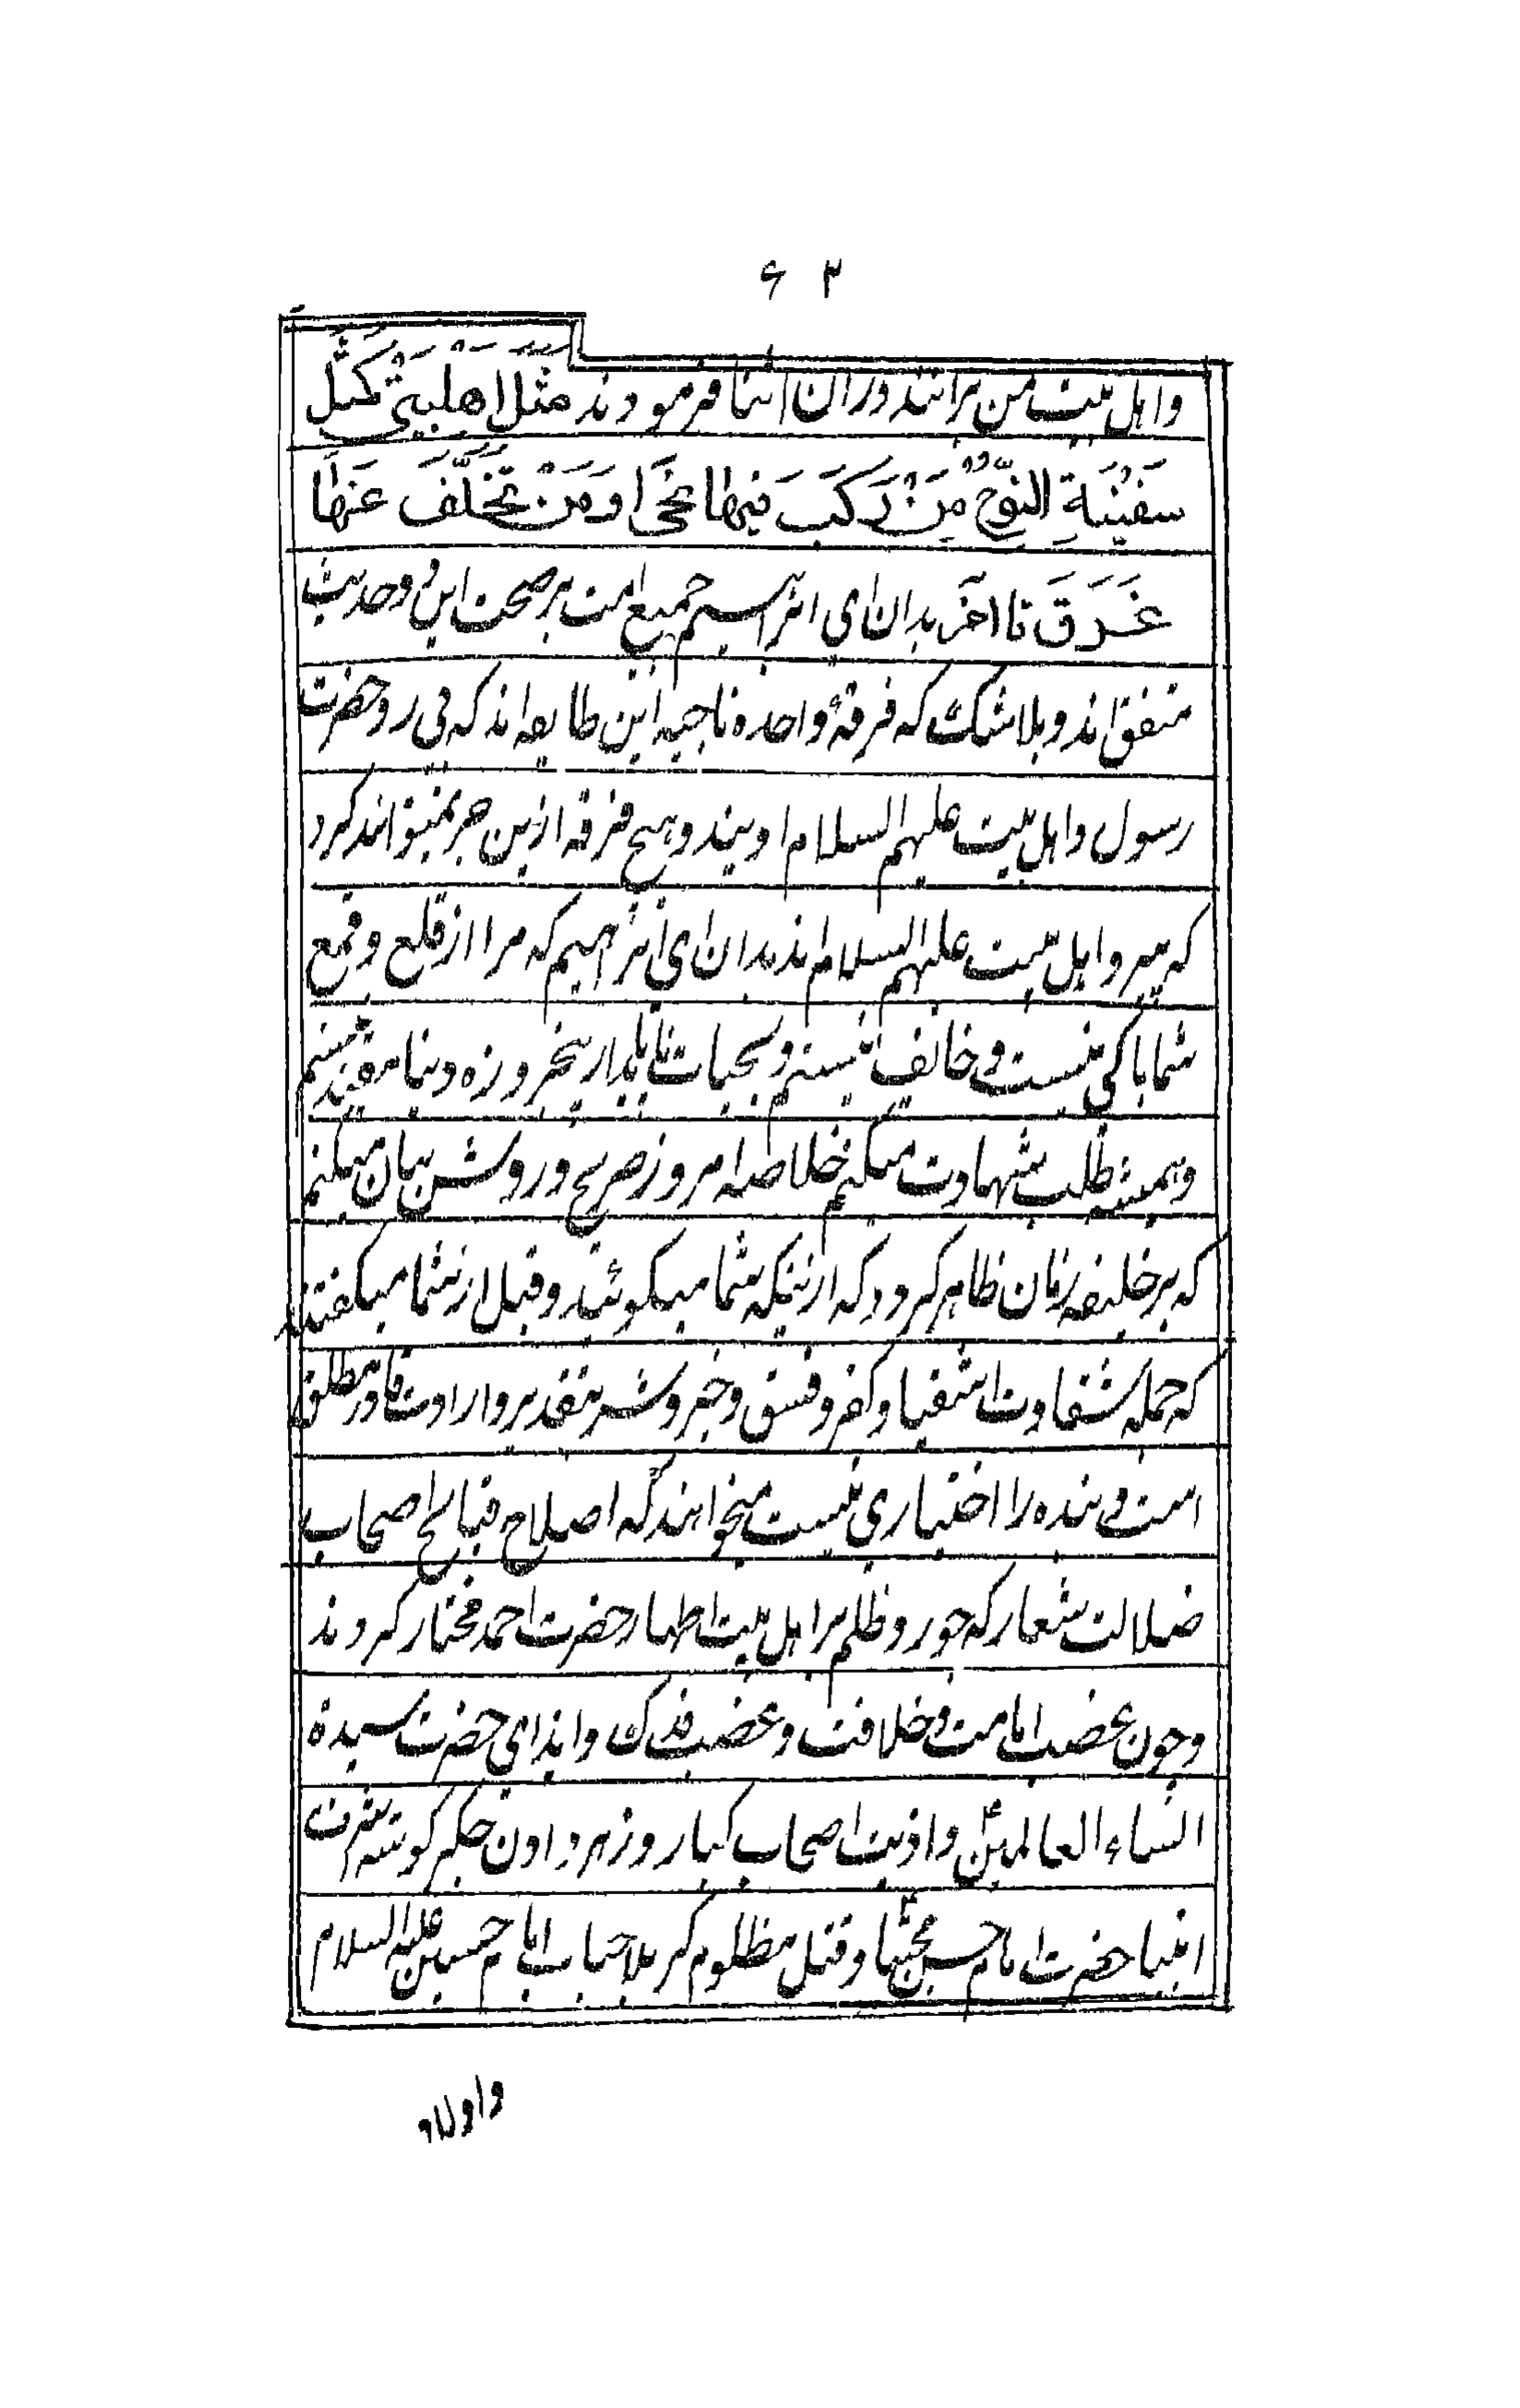 ۶۲
واهل بیت من برانند وران اثنا فرمودند مَثَلُ اَهْلِبَیْتِیْ کَمَثَلِ
سَفِیْنَةِ النُّوْحِ مَنْ رَکَبَ فِیْهَا نَجَیٰ وَمَنْ تَخَلَّفَ عَنْهَا
غَرَقَ تا اخر بدان ای ابراهیم جمیع امت بر صحت این دو حدیث
متفق اند و بلا شک که فرقهٔ واحده ناجیه این طایفه اند که پی رو حضرت
رسول واهل بیت علیهم السلام اویند و هیچ فرقه ازین جر نمیتوانند کرد
که پیرو اهل بیت علیهم السلام اند بدان ای ابراهیم که مرا از قلع و قمع
شما باکی نیست و خائف نیستم و بحیات ناپایدار پنجروزه دنیا مقید نیستم
و همیشه طلب شهادت میکنم خلاصه امروز صریح و روشن بیان میکنم
که بر خلیفه زمان ظاهر کردد که ازینکه شما میکوئید و قبل از شما میکفتند
که جمله شقاوت اشقیا و کفر و فسق و خیر و شر بتقدیر و ارادت قادر مطلق
است و بنده را اختیاری نیست میخواهند که اصلاح قبایح اصحاب
ضلالت شعار که جور و ظلم بر اهل بیت اطهار حضرت احمد مختار کردند
و چون غضب امامت و خلافت و غضب فدک و ایذای حضرت سیدة
النساء العالمین و اذیت اصحاب کبار و زهر دادن جکر کوشه اشرف
انبیا حضرت امام حسن مجتبیٰ و قتل مظلوم کربلا جناب امام حسین علیه السلام
واولاد